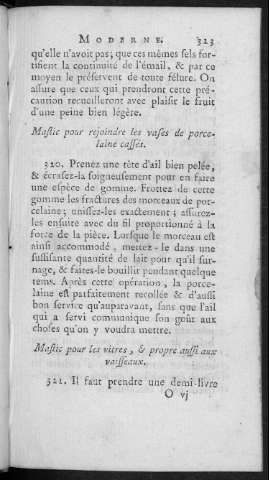 MODERNE. 323
qu'elle n'avoit pas; que ces mêmes sels for-
tifient la continuité de l'émail, & par ce
moyen le préservent de toute fêlure. On
assure que ceux qui prendront cette pré-
caution recueilleront avec plaisir le fruit
d'une peine bien légère.
Mastic pour rejoindre les vases de porce-
laine cassés.
320. Prenez une tête d'ail bien pelée,
& écrasez-la soigneusement pour en faire
une espèce de gomme. Frottez de cette
gomme les fractures des morceaux de por-
celaine; unissez-les exactement; assurez-
les ensuite avec du fil proportionné à la
force de la pièce. Lorsque le morceau est
ainsi accommodé, mettez-le dans une
suffisante quantité de lait pour qu'il sur-
nage, & faites-le bouillir pendant quelque
tems. Après cette opération, la porce-
laine est parfaitement recollée & d'aussi
bon service qu'auparavant, sans que l'ail
qui a servi communique son goût aux
choses qu'on y voudra mettre.
Mastic pour les vitres, & propre aussi aux
vaisseaux.
321. Il faut prendre une demi-livre
O vj